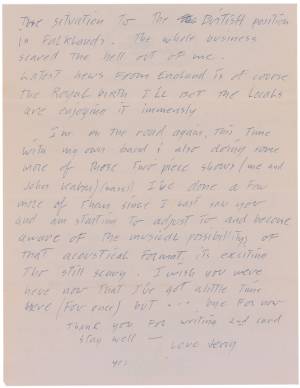 The situation to the British position
in Falklands. The whole business
scared the hell out of me.
Latest news from England is of course
the Royal birth I'll bet the locals
are enjoying it immensly
I'm on the road again, this time
with my own band & also doing some
more of those two piece shows (me and
John Kahn) (bass). I've done a few
more of them since I last saw you
and am starting to adjust to and become
aware of the musical possibilitys of
that acoustical format, its exciting
tho still scary. I wish you were
here now that I've got a little time
here (for once) but ... bye for now
Thank you for writing and
stay well —
Love Jerry